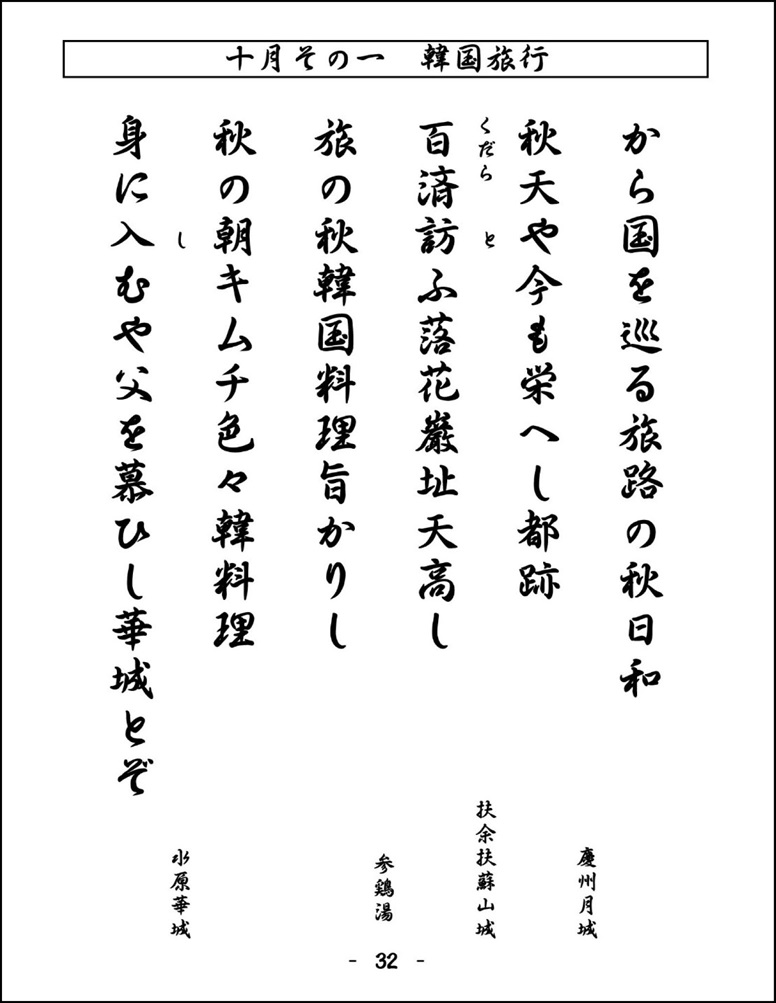 十月その一　韓国旅行
から国を巡る旅路の秋日和
秋天や今も栄へし都跡
慶州月城
くだら　と
百済訪ふ落花巌址天高し
扶余扶蘇山城
旅の秋韓国料理旨かりし
参鶏湯
秋の朝キムチ色々韓料理
し
身に入むや父を慕ひし華城とぞ
水原華城
- 32 -